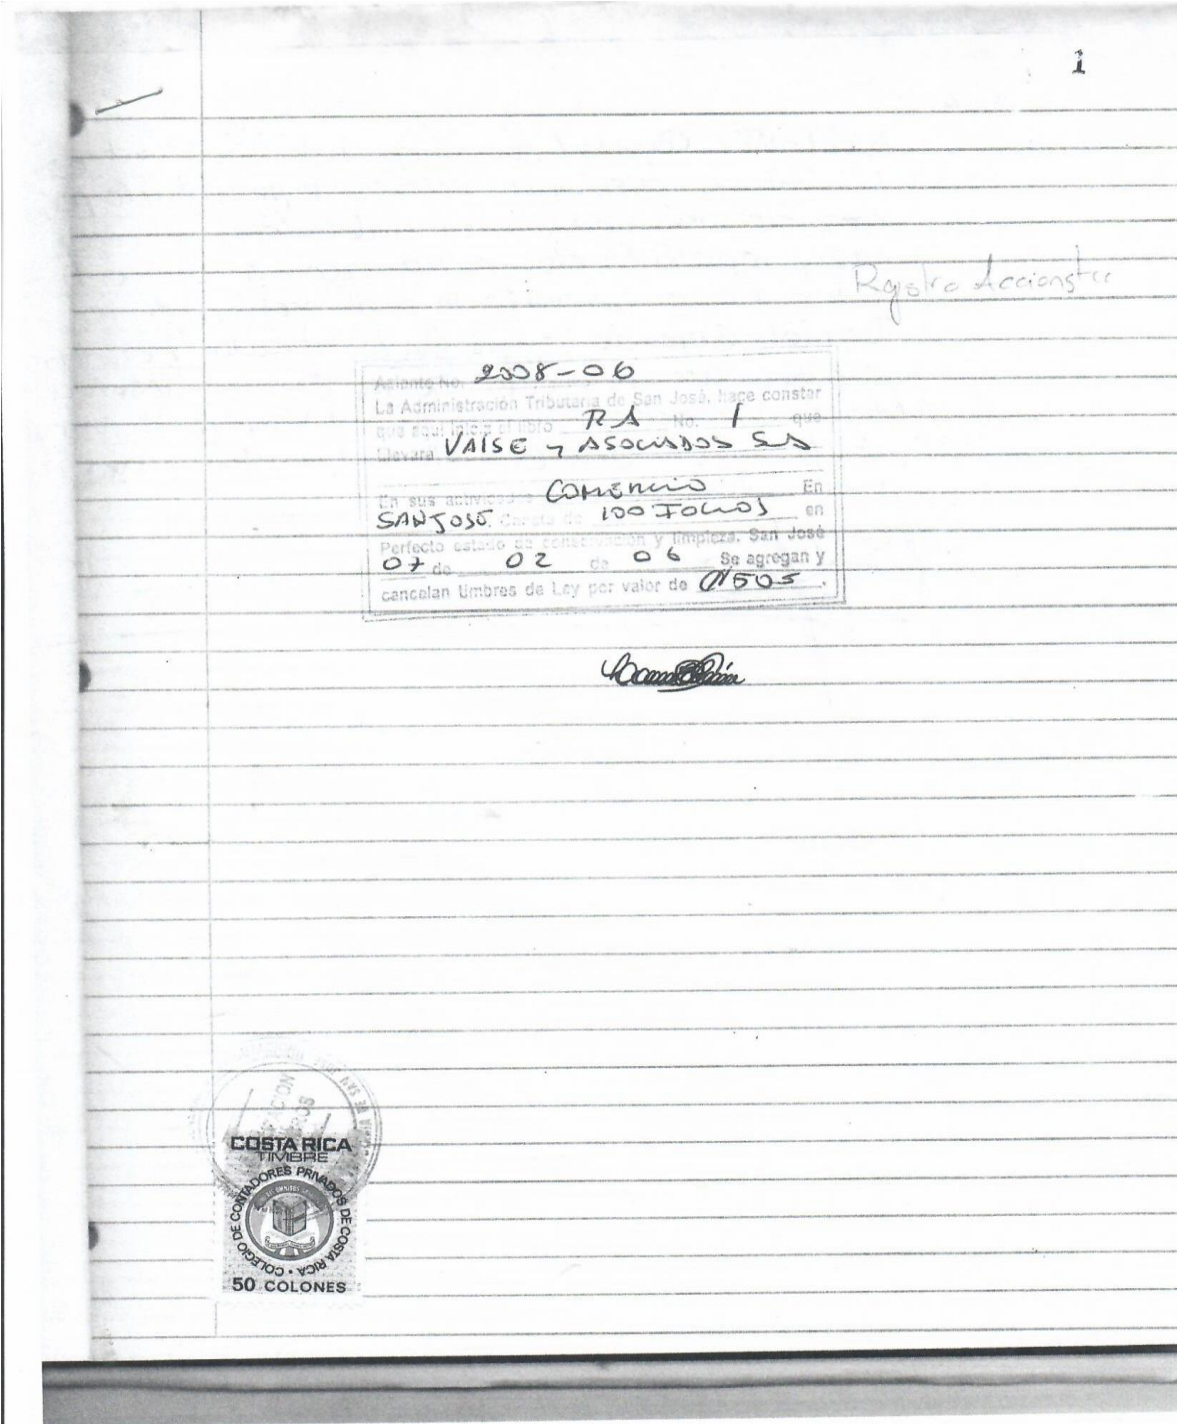 1
Registro Accionista
Asiento No. 2008-06
La Administración Tributaria de San José, hace constar
que aquí inicia el libro RA No. 1 que
Llevará VAISE y ASOCIADOS SA
En sus actividades COMERCIO En
SAN JOSE. Consta de 100 FOLIOS en
Perfecto estado de conservación y limpieza. San José
07 de 02 de 06 Se agregan y
cancelan timbres de Ley por valor de
COSTA RICA
TIMBRE
COLEGIO DE CONTADORES PRIVADOS DE COSTA RICA
50 COLONES